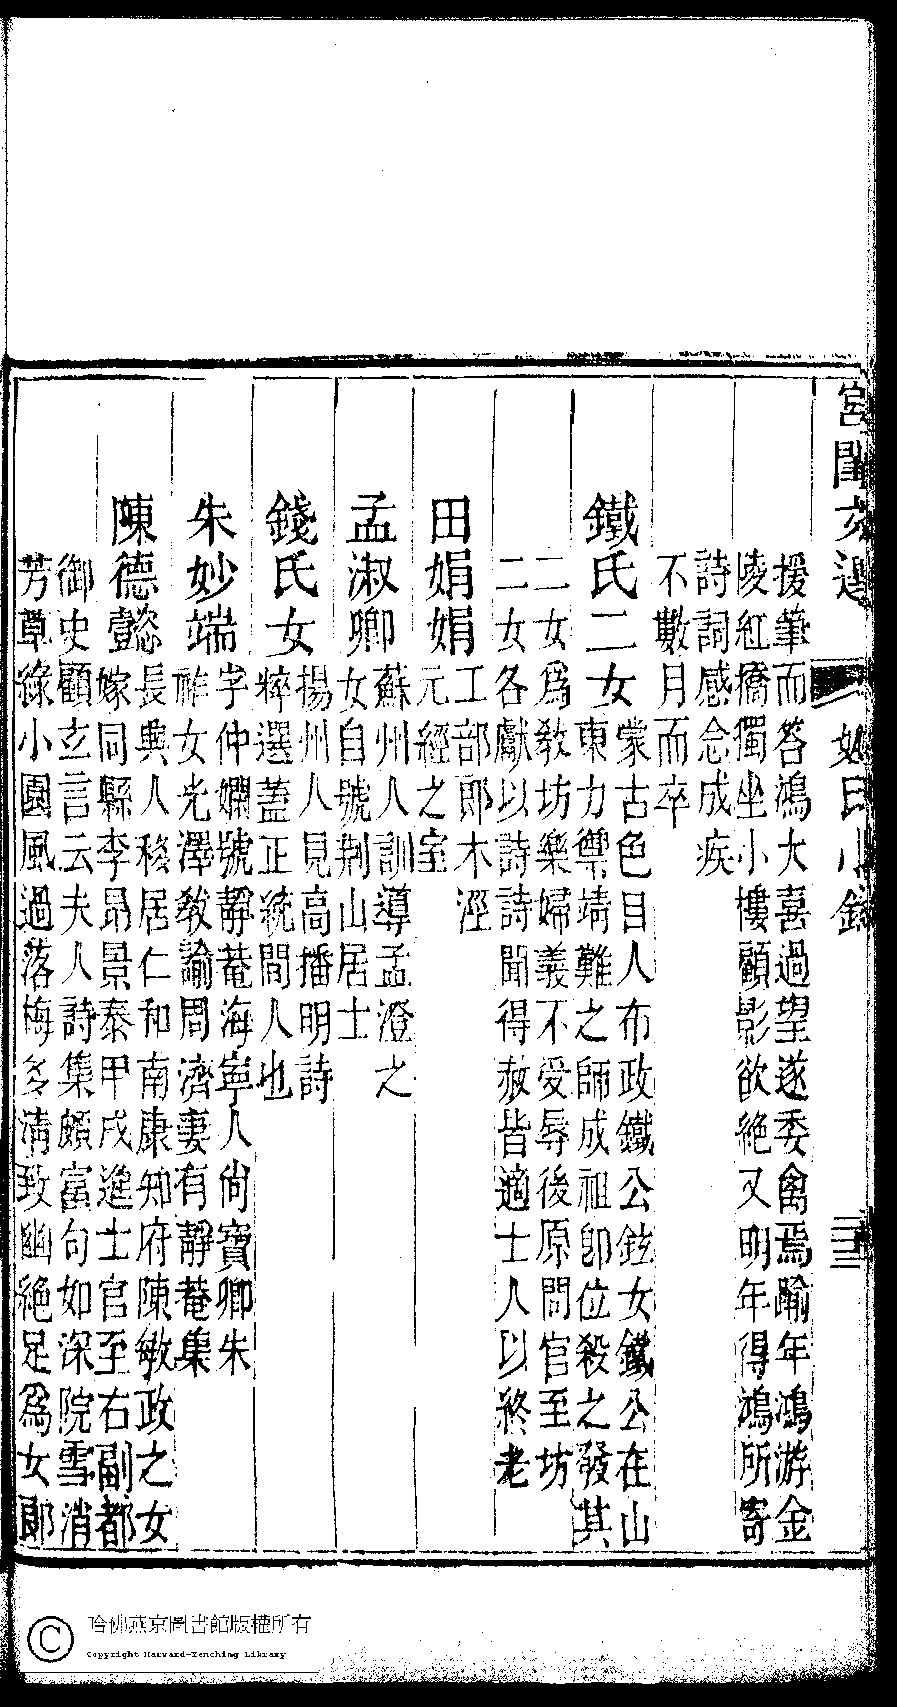 宮閨文選 姓氏小錄 三三
援筆而答鴻大喜過望遂委禽焉踰年鴻游金
陵紅橋獨坐小樓顧影欲絶又明年得鴻所寄
詩詞感念成疾
不數月而卒
鐵氏二女
蒙古色目人布政鐵公鉉女鐵公在山
東力禦靖難之師成祖卽位殺之發其
二女爲敎坊樂婦義不受辱後原問官至坊
二女各獻以詩詩聞得赦皆適士人以終老
田娟娟
工部郎木涇
元經之室
孟淑卿
蘇州人訓導孟澄之
女自號荆山居士
錢氏女
揚州人見高播明詩
粹選蓋正統間人也
朱妙端
字仲嫻號靜菴海寧人尚寶卿朱
祚女光澤敎諭周濟妻有靜菴集
陳德懿
長興人移居仁和南康知府陳敏政之女
嫁同縣李昻景泰甲戌進士官至右副都
御史顧玄言云夫人詩集頗富句如深院雪消
芳草綠小園風過落梅多淸致幽絶足爲女郞
哈佛燕京圖書館版權所有
Copyright Harvard-Yenching Library